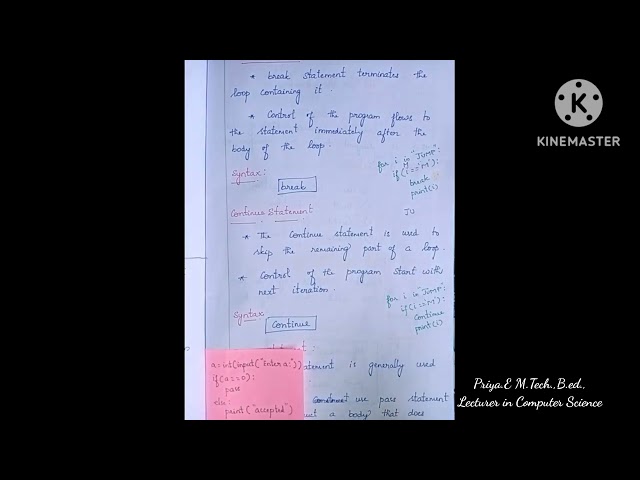 * break statement terminates the
loop containing it.
* Control of the program flows to
the statement immediately after the
body of the loop.
Syntax:
break
for i in "JUMP":
if(i=="M"):
break
print(i)
JU
Continue Statement
* The Continue statement is used to
skip the remaining part of a loop.
* Control of the program start with
next iteration.
Syntax
Continue
for i in "JUMP":
if(i=="M"):
Continue
print(i)
atement is generally used
use pass statement
a body that does
a=int(input("Enter a:"))
if(a==0):
pass
else:
print("accepted")
KINEMASTER
Priya.E M.Tech.,B.ed.,
Lecturer in Computer Science